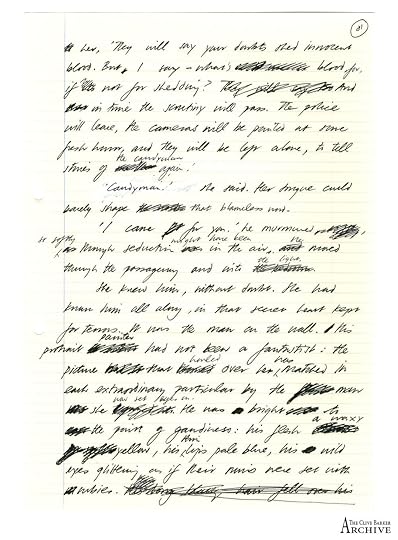 21
her, 'They will say your doubts shed innocent
blood. But, I say - what's blood for,
if not for shedding? And
in time the scrutiny will pass. The police
will leave, the cameras will be pointed at some
fresh horror, and they will be left alone, to tell
stories of the Candyman again.'
'Candyman' she said. Her tongue could
barely shape that blameless word.
'I came for you.' he murmured
so softly, as though seduction might have been in the air, moved
through the passageway and into the light.
She knew him, without doubt. She had
known him all along, in that secret heart kept
for terrors. It was the man on the wall. His
portrait painter had not been a fantastist: the
picture that howled over her, matched in
each extraordinary particular by the man
she now set eyes on. He was bright to
the point of gaudiness: his flesh a waxy
yellow, his thin lips pale blue, his wild
eyes glittering as if their irises were set with
rubies. his
THE CLIVE BARKER
ARCHIVE